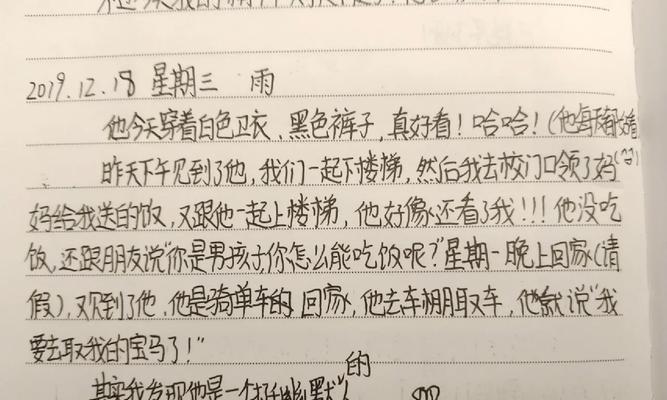 2019.12.18 星期三 雨
他今天穿着白色卫衣、黑色裤子,真好看!哈哈!(他每天都好看
昨天下午见到了他,我们一起下楼梯,然后我去校门口领了妈
妈给我送的饭,又跟他一起上楼梯,他好像还看了我!!!他没吃
饭,还跟朋友说“你是男孩子,你怎么能吃饭呢?”星期一晚上回家(请
假),又见到了他,他是骑单车的回家,他去车棚取车,他就说“我
要去取我的宝马了!”
的
其实我发现他是一个挺幽默